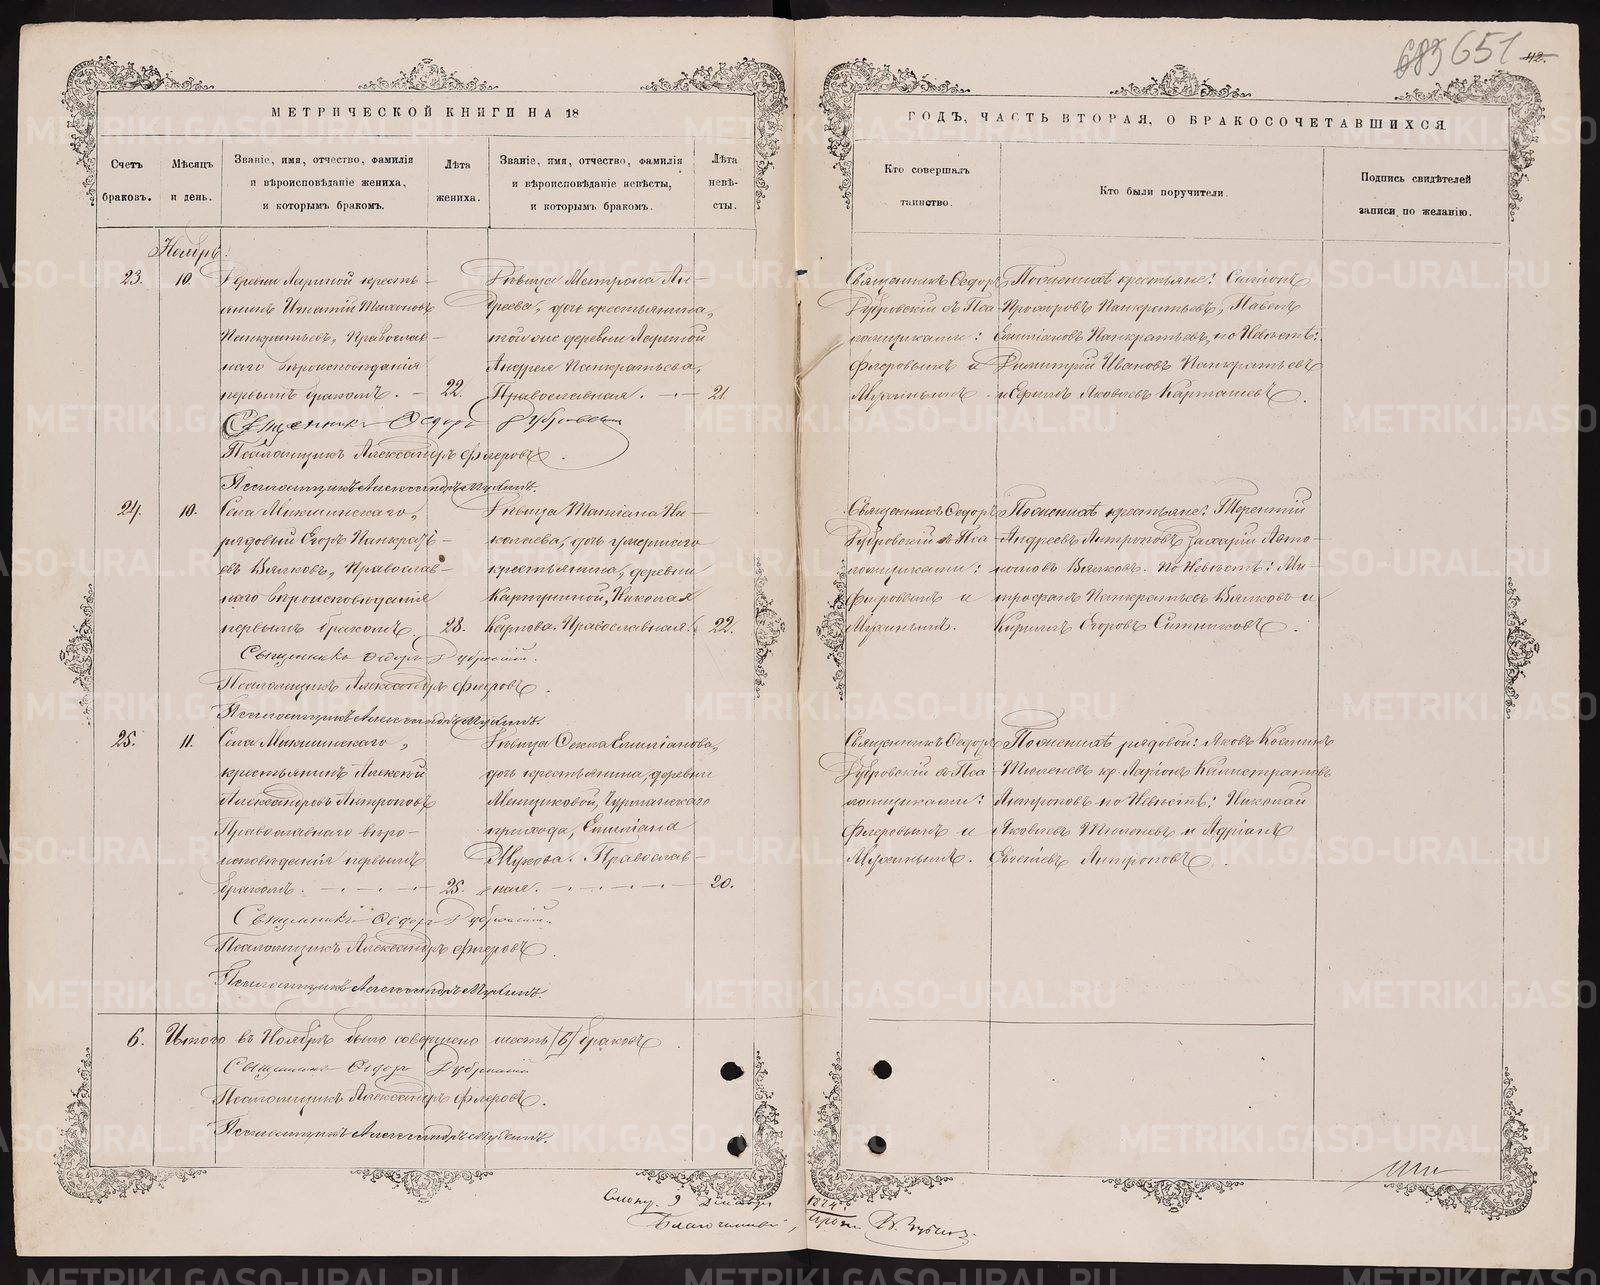 683 651 42.
МЕТРИЧЕСКОЙ КНИГИ НА 18
Счетъ
браковъ.
Мѣсяцъ
и день.
Званіе, имя, отчество, фамилія
и вѣроисповѣданіе жениха,
и которымъ бракомъ.
Лѣта
жениха.
Званіе, имя, отчество, фамилія
и вѣроисповѣданіе невѣсты,
и которымъ бракомъ.
Лѣта
невѣ-
сты.
Ноябрь.
23. 10. Деревни Лариной кресть-
янинъ Игнатій Тихоновъ
Панкратьевъ, Православ-
наго вѣроисповѣданія
первымъ бракомъ. 22.
Дѣвица Матрона Ан-
дреева, дочь крестьянина,
той же деревни Лариной
Андрея Панкратьева,
Православная. 21.
Священникъ Ѳедоръ Дубровскій
Псаломщикъ Александръ Флеровъ.
Псаломщикъ Александръ Мухинъ.
24. 10. Села Микшинскаго,
рядовый Егоръ Панкрать-
евъ Вялковъ, Православ-
наго вѣроисповѣданія
первымъ бракомъ. 28.
Дѣвица Татіана Ни-
колаева, дочь умершаго
крестьянина, деревни
Николая
Карпова. Православная. 22.
Священникъ Ѳедоръ Дубровскій.
Псаломщикъ Александръ Флеровъ.
Псаломщикъ Александръ Мухинъ.
25. 11. Села Микшинскаго,
крестьянинъ Алексѣй
Александровъ Антроповъ
Православнаго вѣро-
исповѣданія первымъ
бракомъ. 25.
Дѣвица Ѳекла Емиліанова,
дочь крестьянина, деревни
прихода, Емиліана
Мухова. Православ-
ная. 20.
Священникъ Ѳедоръ Дубровскій.
Псаломщикъ Александръ Флеровъ.
Псаломщикъ Александръ Мухинъ.
6. Итого въ Ноябрѣ было совершено шесть /6/ браковъ.
Священникъ Ѳедоръ Дубровскій
Псаломщикъ Александръ Флеровъ.
Псаломщикъ Александръ Мухинъ.
9 Декабря
Благочинный,
ГОДЪ, ЧАСТЬ ВТОРАЯ, О БРАКОСОЧЕТАВШИХСЯ
Кто совершалъ
таинство.
Кто были поручители.
Подпись свидѣтелей
записи по желанію.
Священникъ Ѳедоръ
Дубровскій съ Пса
ломщиками:
Флеровымъ и
Мухинымъ.
По женихѣ крестьяне: Симіонъ
Прохоровъ Панкратьевъ, Павелъ
Емиліановъ Панкратьевъ, по Невѣстѣ:
Димитрій Ивановъ Панкратьевъ
и Ефимъ Яковлевъ Карташевъ.
Священникъ Ѳедоръ
Дубровскій съ Пса
ломщиками:
Флеровымъ и
Мухинымъ.
По женихѣ крестьяне: Терентій
Андреевъ Антроповъ Захарій Анто-
новъ Вялковъ. По Невѣстѣ: Ми-
трофанъ Панкратьевъ Вялковъ и
Кириллъ Егоровъ Ситниковъ.
Священникъ Ѳедоръ
Дубровскій съ Пса
ломщиками:
Флеровымъ и
Мухинымъ.
По женихѣ рядовой: Яковъ Козминъ
Тюленевъ кр. Ларіонъ Калистратовъ
Антроповъ по Невѣстѣ: Николай
Яковлевъ Тюленевъ и Адріанъ
Антроповъ.
1874.